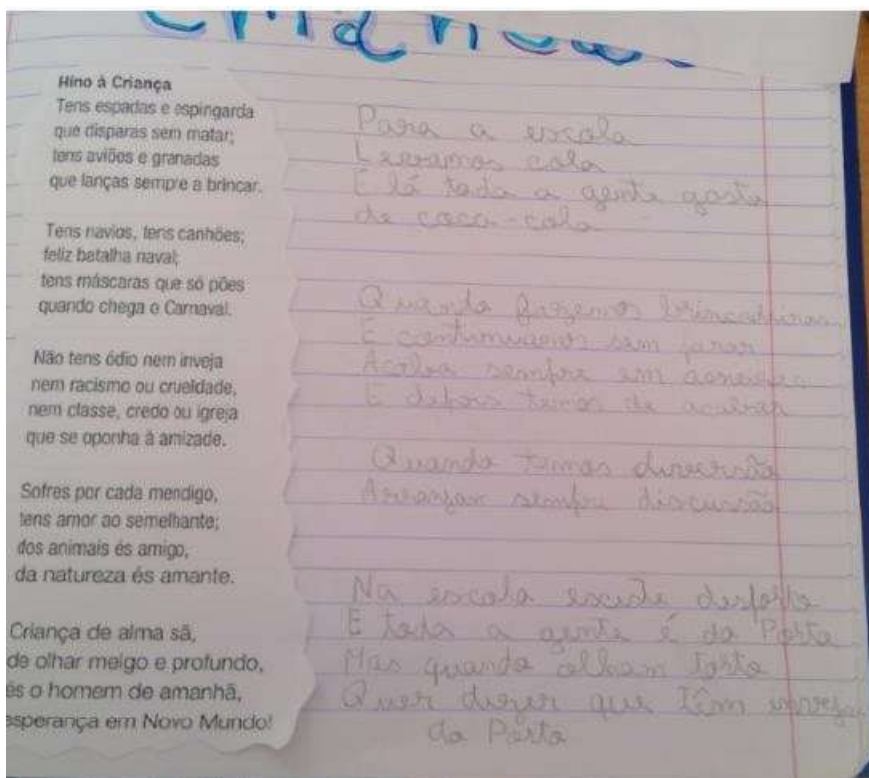 Hino à Criança
Tens espadas e espingarda
que disparas sem matar;
tens aviões e granadas
que lanças sempre a brincar.
Tens navios, tens canhões;
feliz batalha naval;
tens máscaras que só pões
quando chega o Carnaval.
Não tens ódio nem inveja
nem racismo ou crueldade,
nem classe, credo ou igreja
que se oponha à amizade.
Sofres por cada mendigo,
tens amor ao semelhante;
dos animais és amigo,
da natureza és amante.
Criança de alma sã,
de olhar meigo e profundo,
és o homem de amanhã,
esperança em Novo Mundo!
Para a escola
Levamos cola
E lá toda a gente gosta
de coca-cola
Quando fazemos brincadeiras
E continuamos sem parar
Acaba sempre em
E depois temos de
Quando temos diversão
Arranjam sempre discussão
Na escola existe desporto
E toda a gente é do Porto
Mas quando olham torto
Quer dizer que têm inveja
do Porto